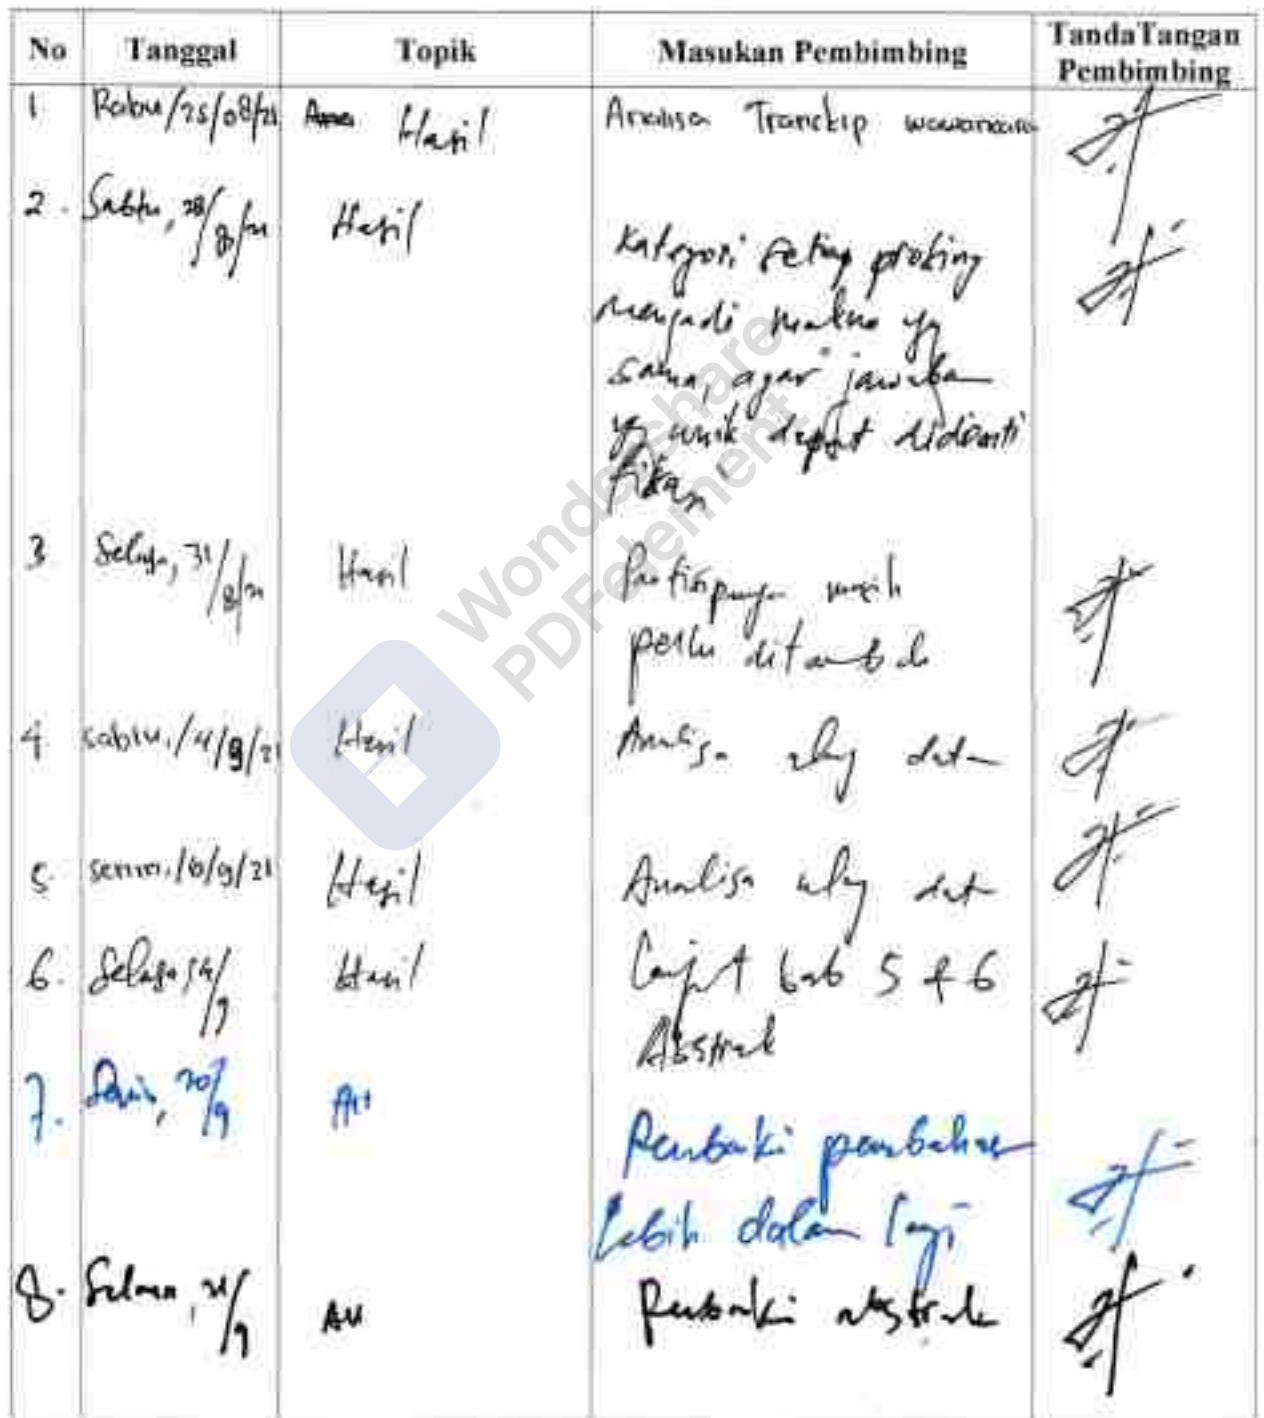 No Tanggal Topik Masukan Pembimbing TandaTangan Pembimbing
1 Rabu/25/08/21 Hasil Analisa Transkip wawancara
2. Sabtu, 28/8/21 Hasil
Kategori setiap probing
menjadi makna yg
sama, agar jawaban
yg unik dapat didenti
fikasi
3 Selasa, 31/8/21 Hasil Partisipannya masih
perlu ditambah
4. sabtu,/4/9/21 Hasil Analisa ulang data
5. senin,/6/9/21 Hasil Analisa ulang data
6. Selasa 14/9 Hasil Lanjut bab 5 & 6
Abstrak
7. Senin, 20/9 All
Perbaiki pembahasan
lebih dalam lagi
8. Selasa, 21/9 All Perbaiki abstrak
Wondershare
PDFelement